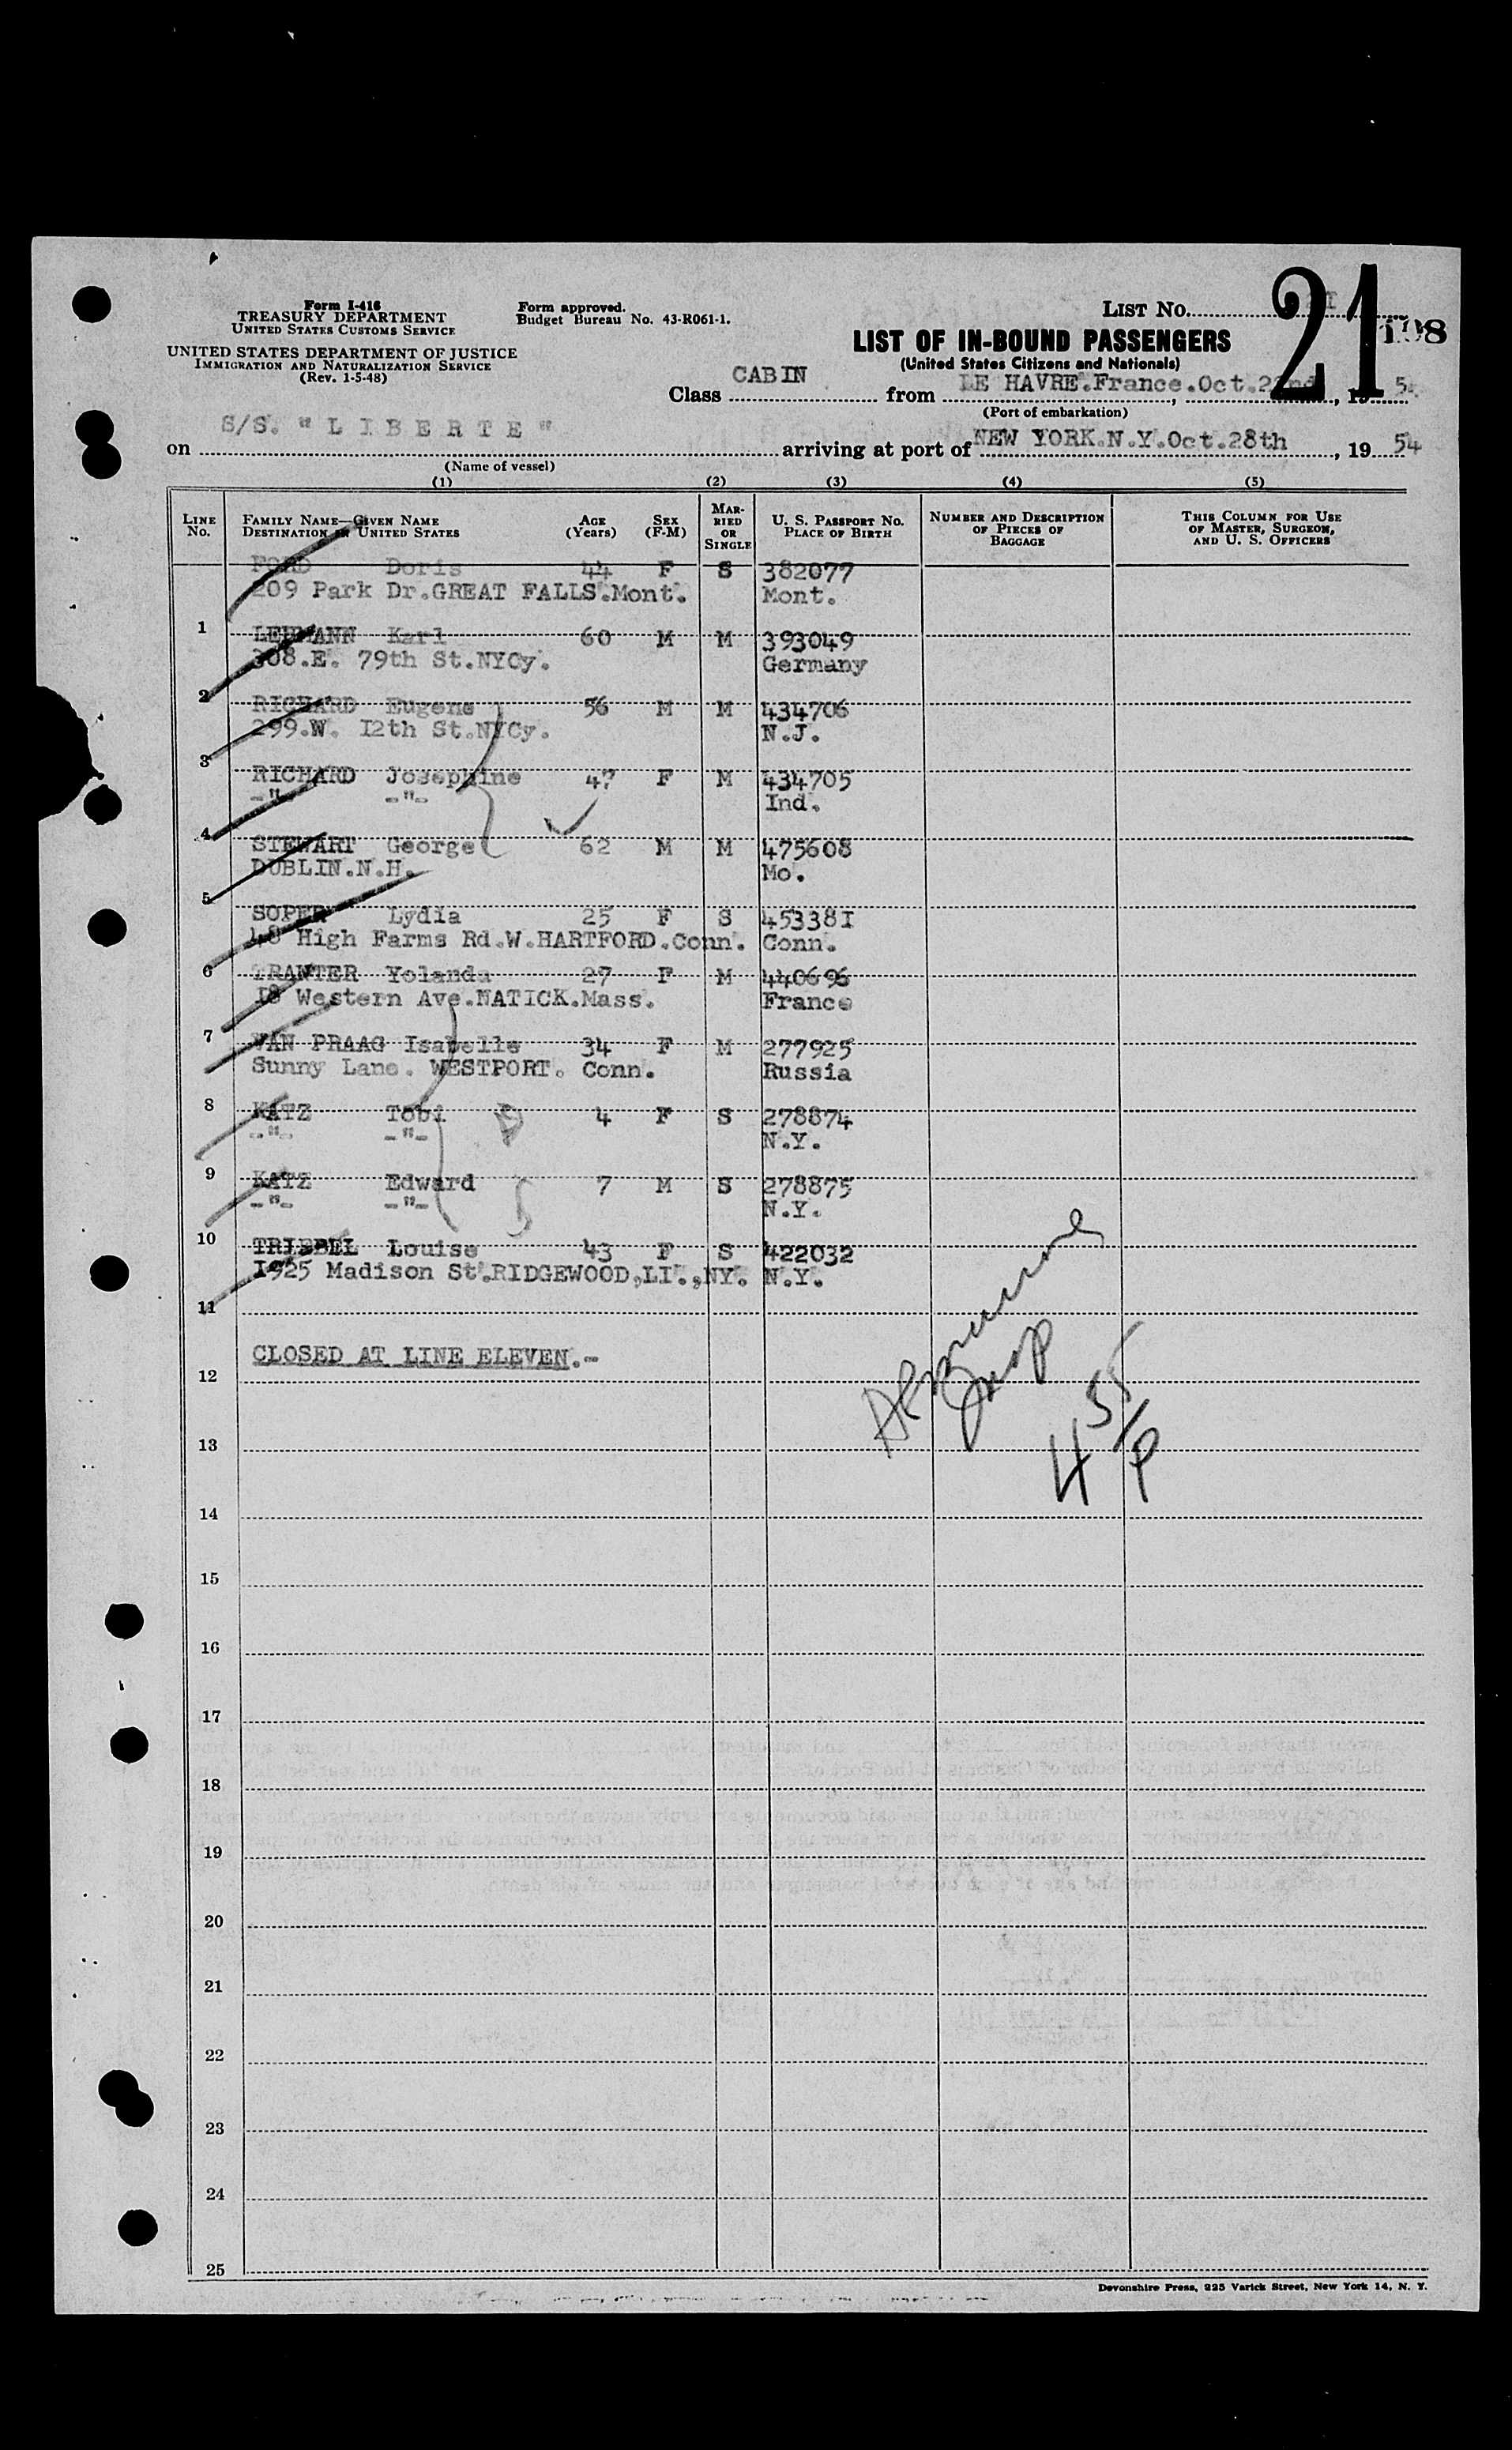 Form I-416
TREASURY DEPARTMENT
UNITED STATES CUSTOMS SERVICE
UNITED STATES DEPARTMENT OF JUSTICE
IMMIGRATION AND NATURALIZATION SERVICE
(Rev. 1-5-48)
Form approved.
Budget Bureau No. 43-R061-1.
LIST No. 21
21
108
LIST OF IN-BOUND PASSENGERS
(United States Citizens and Nationals)
Class CABIN from LE HAVRE.France.Oct.22nd, 1954
(Port of embarkation)
on S/S. "LIBERTE" arriving at port of NEW YORK.N.Y.Oct.28th, 19 54
(Name of vessel)
(1) (2) (3) (4) (5)
LINE No. FAMILY NAME—GIVEN NAME DESTINATION IN UNITED STATES AGE (Years) SEX (F-M) MARRIED OR SINGLE U. S. PASSPORT No. PLACE OF BIRTH NUMBER AND DESCRIPTION OF PIECES OF BAGGAGE THIS COLUMN FOR USE OF MASTER, SURGEON, AND U. S. OFFICERS
FORD Doris 44 F S 382077
209 Park Dr.GREAT FALLS.Mont. Mont.
1
LEHMANN Karl 60 M M 393049
308.E. 79th St.NYCy. Germany
2
RICHARD Eugene 56 M M 434706
299.W. 12th St.NYCy. N.J.
3
RICHARD Josephine 47 F M 434705
-"- -"- Ind.
4
STEWART George 62 M M 475608
DUBLIN.N.H. Mo.
5
SOPER Lydia 25 F S 453381
48 High Farms Rd.W.HARTFORD.Conn. Conn.
6
TRANTER Yolanda 27 F M 440696
18 Western Ave.NATICK.Mass. France
7
VAN PRAAG Isabelle 34 F M 277925
Sunny Lane. WESTPORT. Conn. Russia
8
KATZ Tobi 4 F S 278874
-"- -"- N.Y.
9
KATZ Edward 7 M S 278875
-"- -"- N.Y.
10
TRIEBEL Louise 43 F S 422032
1925 Madison St.RIDGEWOOD,LI.,NY. N.Y.
11
CLOSED AT LINE ELEVEN.-
12
13
455/P
14
15
16
17
18
19
20
21
22
23
24
25
Devonshire Press, 225 Varick Street, New York 14, N. Y.